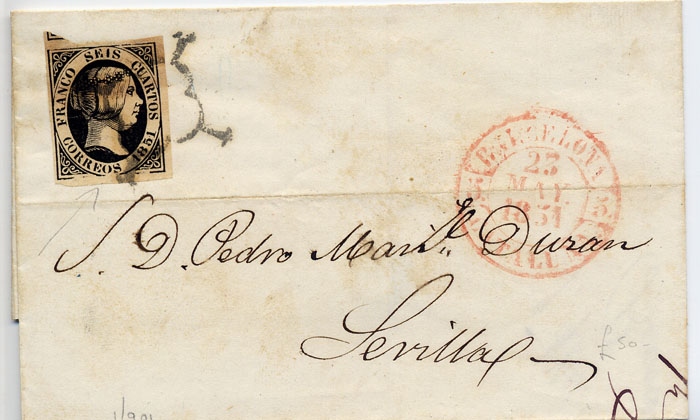 FRANCO SEIS CUARTOS
CORREOS 1851
BARCELONA
23
MAY
1851
S. D. Pedro Marn.l Duran
Sevilla
£50-